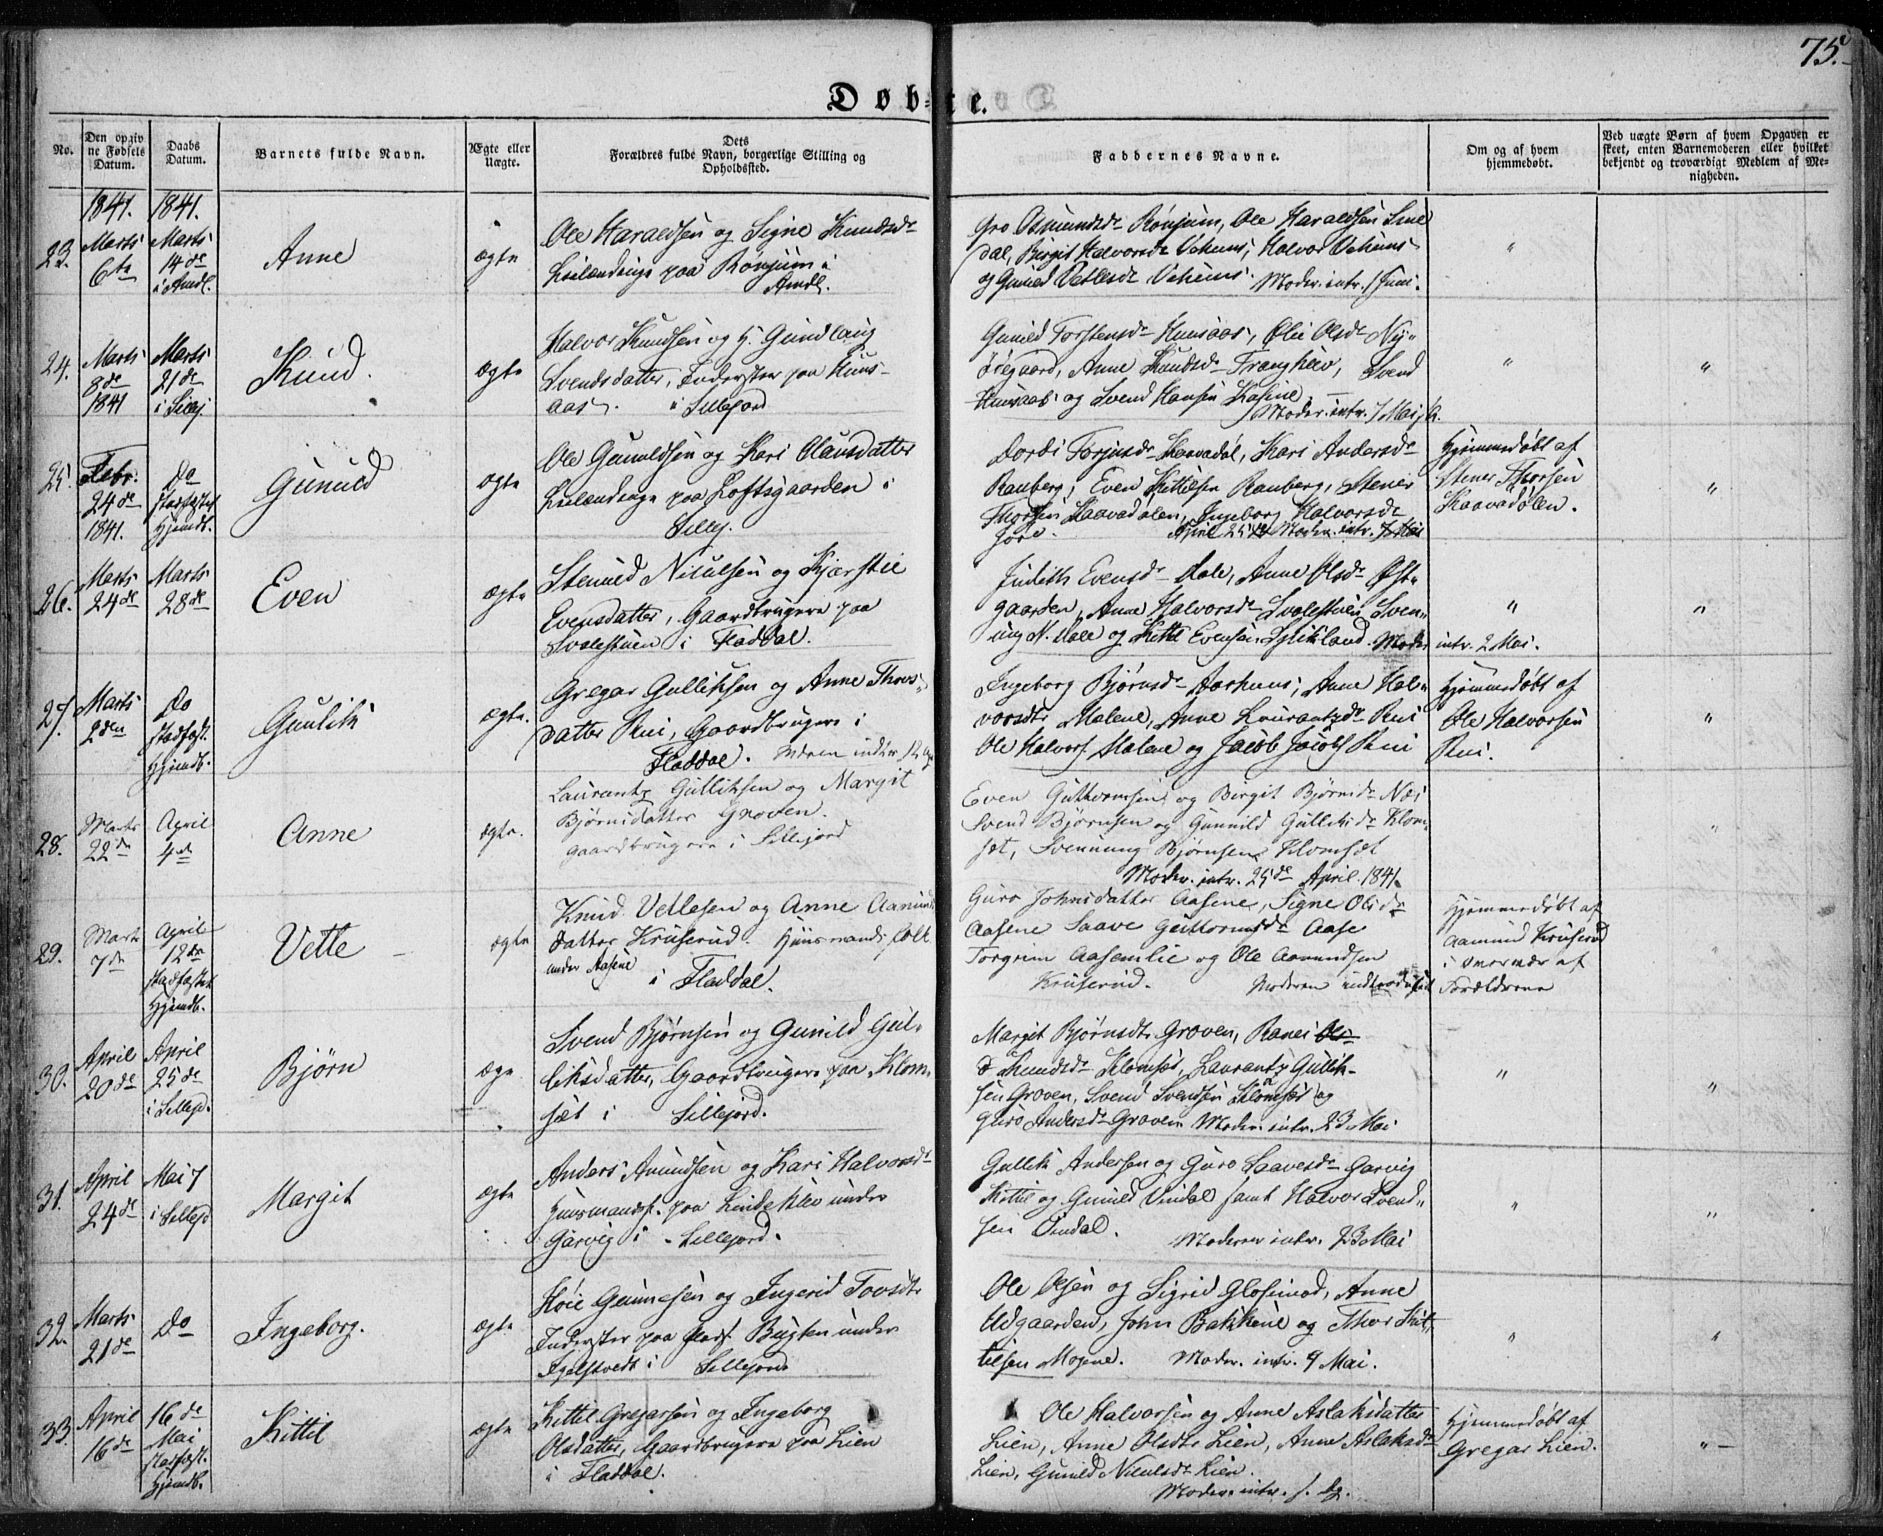 75.
Døbte.
No.
Den opgiv
ne Fødsels
Datum.
Daabs
Datum.
Barnets fulde Navn.
Ægte eller
Uægte.
Dets
Forældres fulde Navn, borgerlige Stilling og
Opholdssted.
Faddernes Navne.
Om og af hvem
hjemmedøbt.
Ved uægte Børn af hvem Opgaven er
skeet, enten Barnemoderen eller hvilket
bekjendt og troværdigt Medlem af Me-
nigheden.
23.
1841.
Marts
6te
1841.
Marts
14de
i Amdl.
Anne
ægte
Ole Haraldsen og Signe Knudsdr
Leilændinge paa Rønjum i
Amdl.
Gro Osmundsdr Rønjum, Ole Haraldsen
dal, Birgit Halvorsdr Veheims, Halvor Veheims
og Gunild Vetlesdr Veheims. Moder. intr. 1 Juni.
"
24.
Marts
8de
1841
Marts
21de
i Sillej
Knud.
ægte
Halvor Knudsen og H. Gundlaug
Svendsdatter, Inderster paa Huns-
aas. i Sillejord
Gunild Torstensdr Hunsaas, Ølie Olsdr Ny-
øregaard, Anne Knudsdr Svend
Hunsaas og Svend Hansen Moder. intr. 7 Mai
"
"
25.
Febr.
24de
1841.
Do
stadfæstet
Hjemdb.
Gunuld
ægte
Ole Gunuldsen og Kari Olausdatter
Leilændinge paa Loftsgaarden i
Sillej.
Dordi Torjusdr Haavadøl, Kari Andersdr
Rauberg, Even Kittilsen Rauberg, Stener
Thorsen Haavadalen, Ingeborg Halvorsdr
Jore. April 25de Moder. intr.
Hjemmedøbt af
Stener Thorsen
Haavadølen.
"
26.
Marts
24de
Marts
28de
Even
ægte
Stenuld Niculsen og Kjerstie
Evensdatter, Gaardbrugere paa
Svalestuen i Fladdal.
Judith Evensdr Dale, Anne Olsdr Øst-
gaarden, Anne Halvorsdr Svalestuen, Sven-
ung N. Dale og Kittil Evensen Moder intr. 2 Mai.
"
"
27.
Marts
2den
Do
stadfæst.
Hjemdb.
Gunlik
ægte.
Gregar Gulliksen og Anne Thors-
datter Rui, Gaardbrugere i
Fladdal. Moren
Ingeborg Bjørnsdr Aarhuus, Anne Hal-
vorsdtr Malene, Anne Laurantzdr Rui
Ole Halvors. Malene og Jacob Jacobs. Rui
Hjemmedøbt af
Ole Halvorsen
Rui.
"
28.
Marts
22de
April
4de
Anne
ægte.
Laurantz Gulliksen og Margit
Bjørnsdatter Groven.
gaardbrugere i Sillejord
Even Guttormsen og Birgit Bjørnsdr Næs
Svend Bjørnsen og Gunnild Gulliksdr Klom-
sæt, Svennung Bjørnsen Klomsæt
Moder. intr. 25de April. 1841.
"
29.
Marts
7de
April
12te
stadfæstet
Hjemdb.
Vetle
ægte
Knud Vetlesen og Anne Aamunds
datter Kruserud. Huusmands folk
under Aasene
i Fladdal.
Guro Johnsdatter Aasene, Signe Olsdr
Aasene Saave Guttormsdr Aase
Torgrim Aasemlie og Ole Aamundsen
Kruserud. Moderen indtroduseret
Hjemmedøbt af
Aamund Kruserud
i overvær af
Forældrene
"
30.
April
20de
April
25de
i Sillejd.
Bjørn
ægte
Svend Bjørnsen og Gunild Gul-
liksdatter, Gaardbrugere paa Klom-
sæt i Sillejord.
Margit Bjørnsdtr Groven, Ranei
Knudsdr Klomsæt, Laurantz Gullik-
sen Groven, Svend Svendsen Klomsæt og
Guro Andersdr Groven Moder. intr. 23 Mai
"
"
31.
April
24de
Mai 7
i Sillejd
Margit
ægte
Anders Amundsen og Kari Halvorsdr
Huusmandsf. paa Lindeklev under
Garvig i Sillejord.
Gullik Andersen og Guro Saavesdr Garvig
Kittil og Gunild Undal samt Halvor Svend-
sen Undal. Moderen intr. 23 Mai
"
"
32.
Marts
21de
Do
Ingeborg.
ægte
Høie Gunnesen og Ingerid Tovsdtr
Inderster paa Plads. Bugten under
i Sillejord
Ole Olsen og Sigrid Glosimod, Anne
Udgaarden, John Bakkene og Thor Kit-
tilsen Mogene. Moder. intr. 9 Mai.
"
"
33.
April
16de
16de
Mai
stadfæst.
Hjemdb.
Kittil
ægte
Kittil Gregarsen og Ingeborg
Olsdatter, Gaardbrugere paa Lien
i Fladdal.
Ole Halvorsen og Anne Aslaksdatter
Lien, Anne Olsdtr Lien, Anne Aslaksdr
Lien, Gunild Niculsdr Lien.
Moder. intr. s. Dg.
Hjemmedøbt af
Gregar Lien.
"